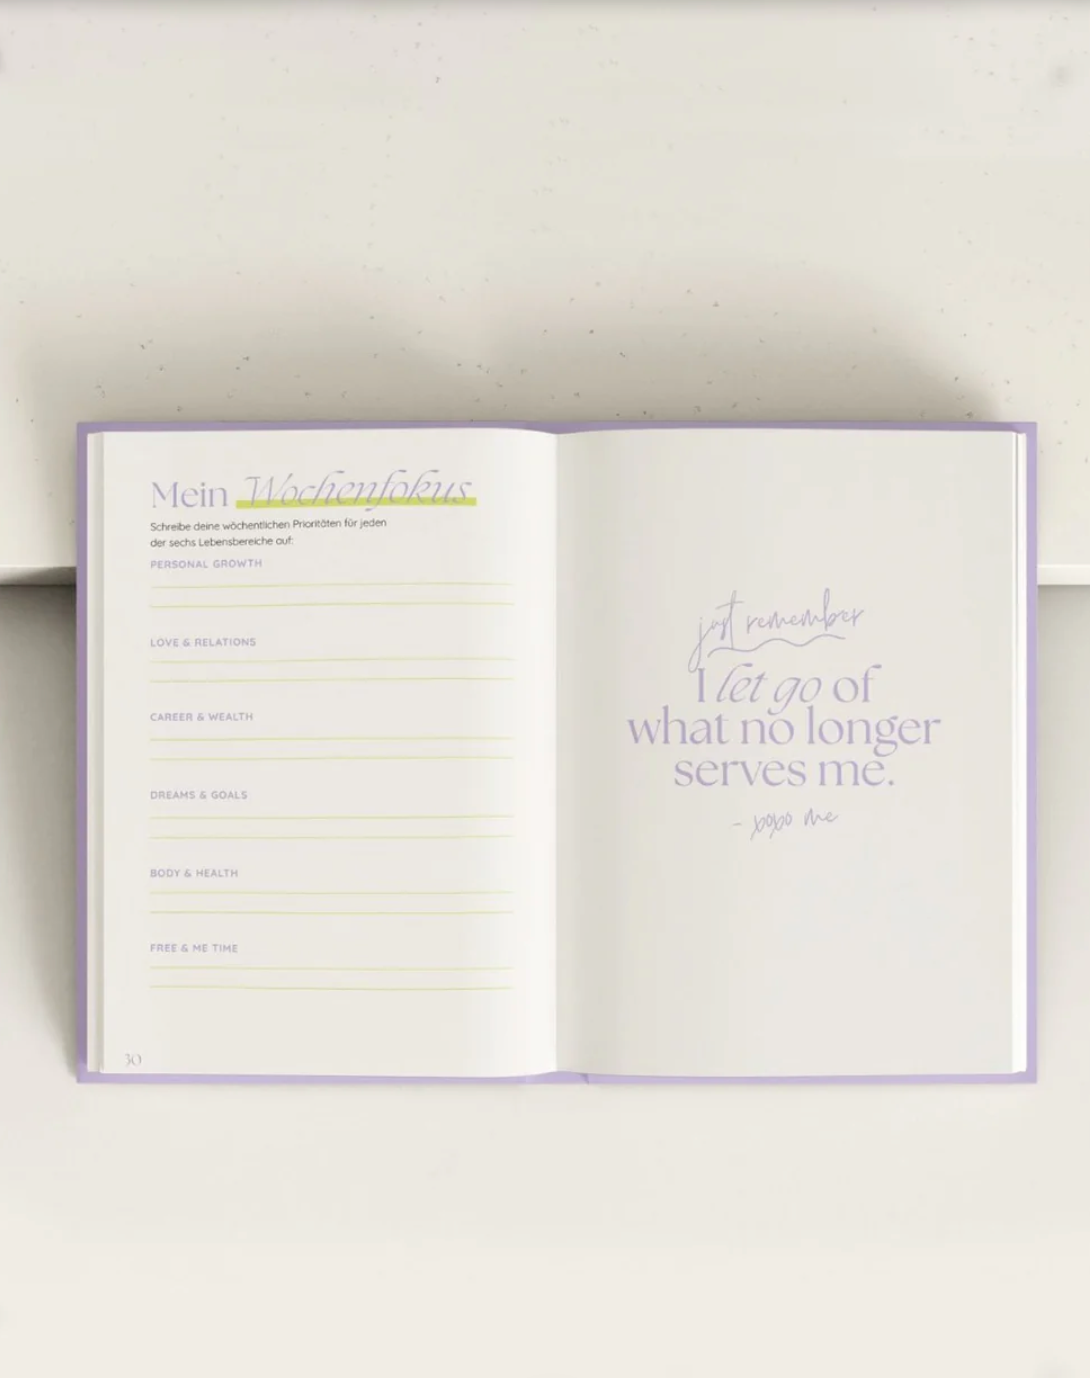 Mein Wochenfokus
Schreibe deine wöchentlichen Prioritäten für jeden
der sechs Lebensbereiche auf:
PERSONAL GROWTH
LOVE & RELATIONS
CAREER & WEALTH
DREAMS & GOALS
BODY & HEALTH
FREE & ME TIME
30
just remember
I let go of
what no longer
serves me.
- xoxo me